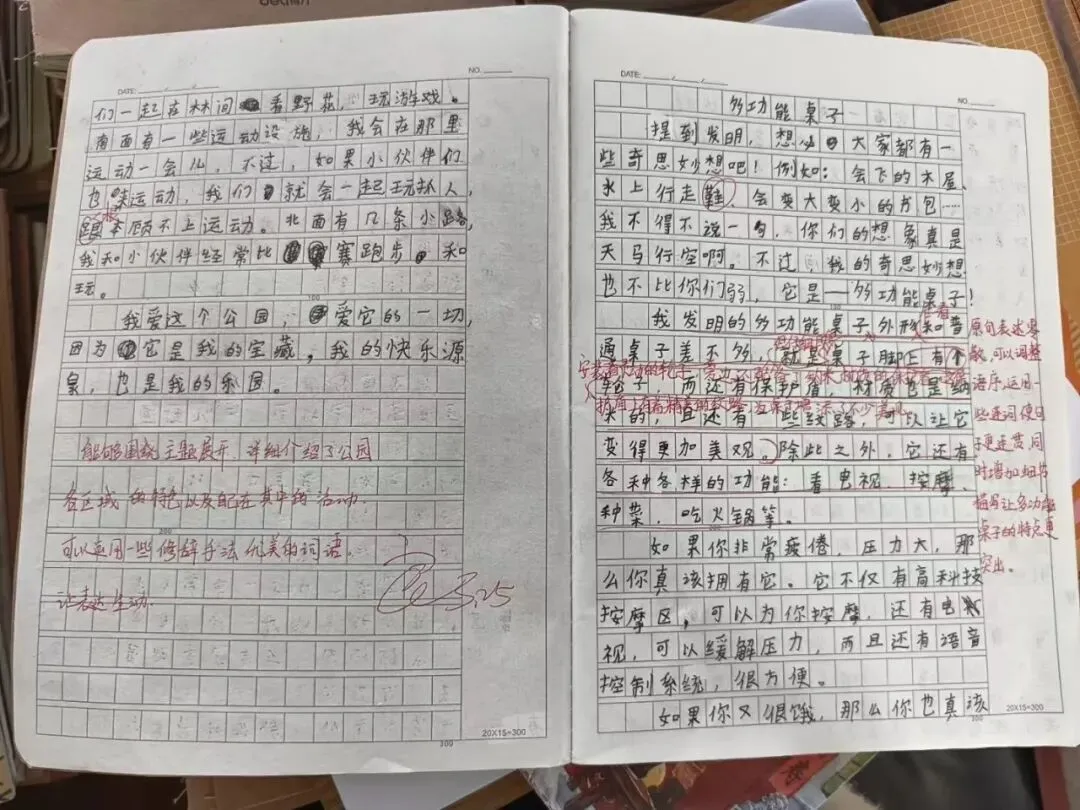 DATE: / /
NO.
们一起在林间看野花，玩游戏。
南面有一些运动设施，我会在那里
运动一会儿，不过，如果小伙伴们
也来运动，我们就会一起玩抓人，
本顾不上运动。北面有几条小路，
我和小伙伴经常比赛跑步和
玩。
100
我爱这个公园，爱它的一切，
因为它是我的宝藏，我的快乐源
泉，也是我的乐园。
能够围绕主题展开，详细介绍了公园
各区域的特色以及自己在其中的活动。
200
可以运用一些修辞手法优美的词语。
让表达生动。
5.25
20X15=300
300
DATE: / /
NO.
多功能桌子
提到发明，想必大家都有一
些奇思妙想吧！例如：会飞的木屋、
水上行走鞋，会变大变小的书包……
我不得不说一句，你们的想象真是
天马行空啊。不过，我的奇思妙想
也不比你们弱，它是——多功能桌子！
100
我发明的多功能桌子外形和普
通桌子差不多，就是桌子脚上有个
轮子，而还有保护盾，材质也是纳
米的，且还有一些纹路，可以让它
变得更加美观。除此之外，它还有
各种各样的功能：看电视、按摩、
种菜、吃火锅等。
200
如果你非常疲倦，压力大，那
么你真该拥有它。它不仅有高科技
按摩区，可以为你按摩，还有电
视，可以缓解压力，而且还有语音
控制系统，很方便。
如果你又很饿，那么你也真该
20X15=300
300
原句表达零
散，可以调整
语序，运用一
些连词使句
子更连贯，同
时增加细节
描写让多功能
桌子的特点更
突出。